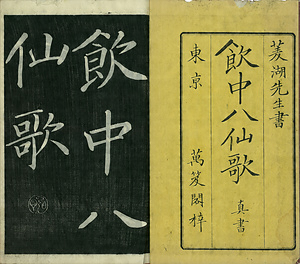 菱湖先生書
飲中八仙歌
真書
東京
萬笈閣梓
飲中八
仙歌